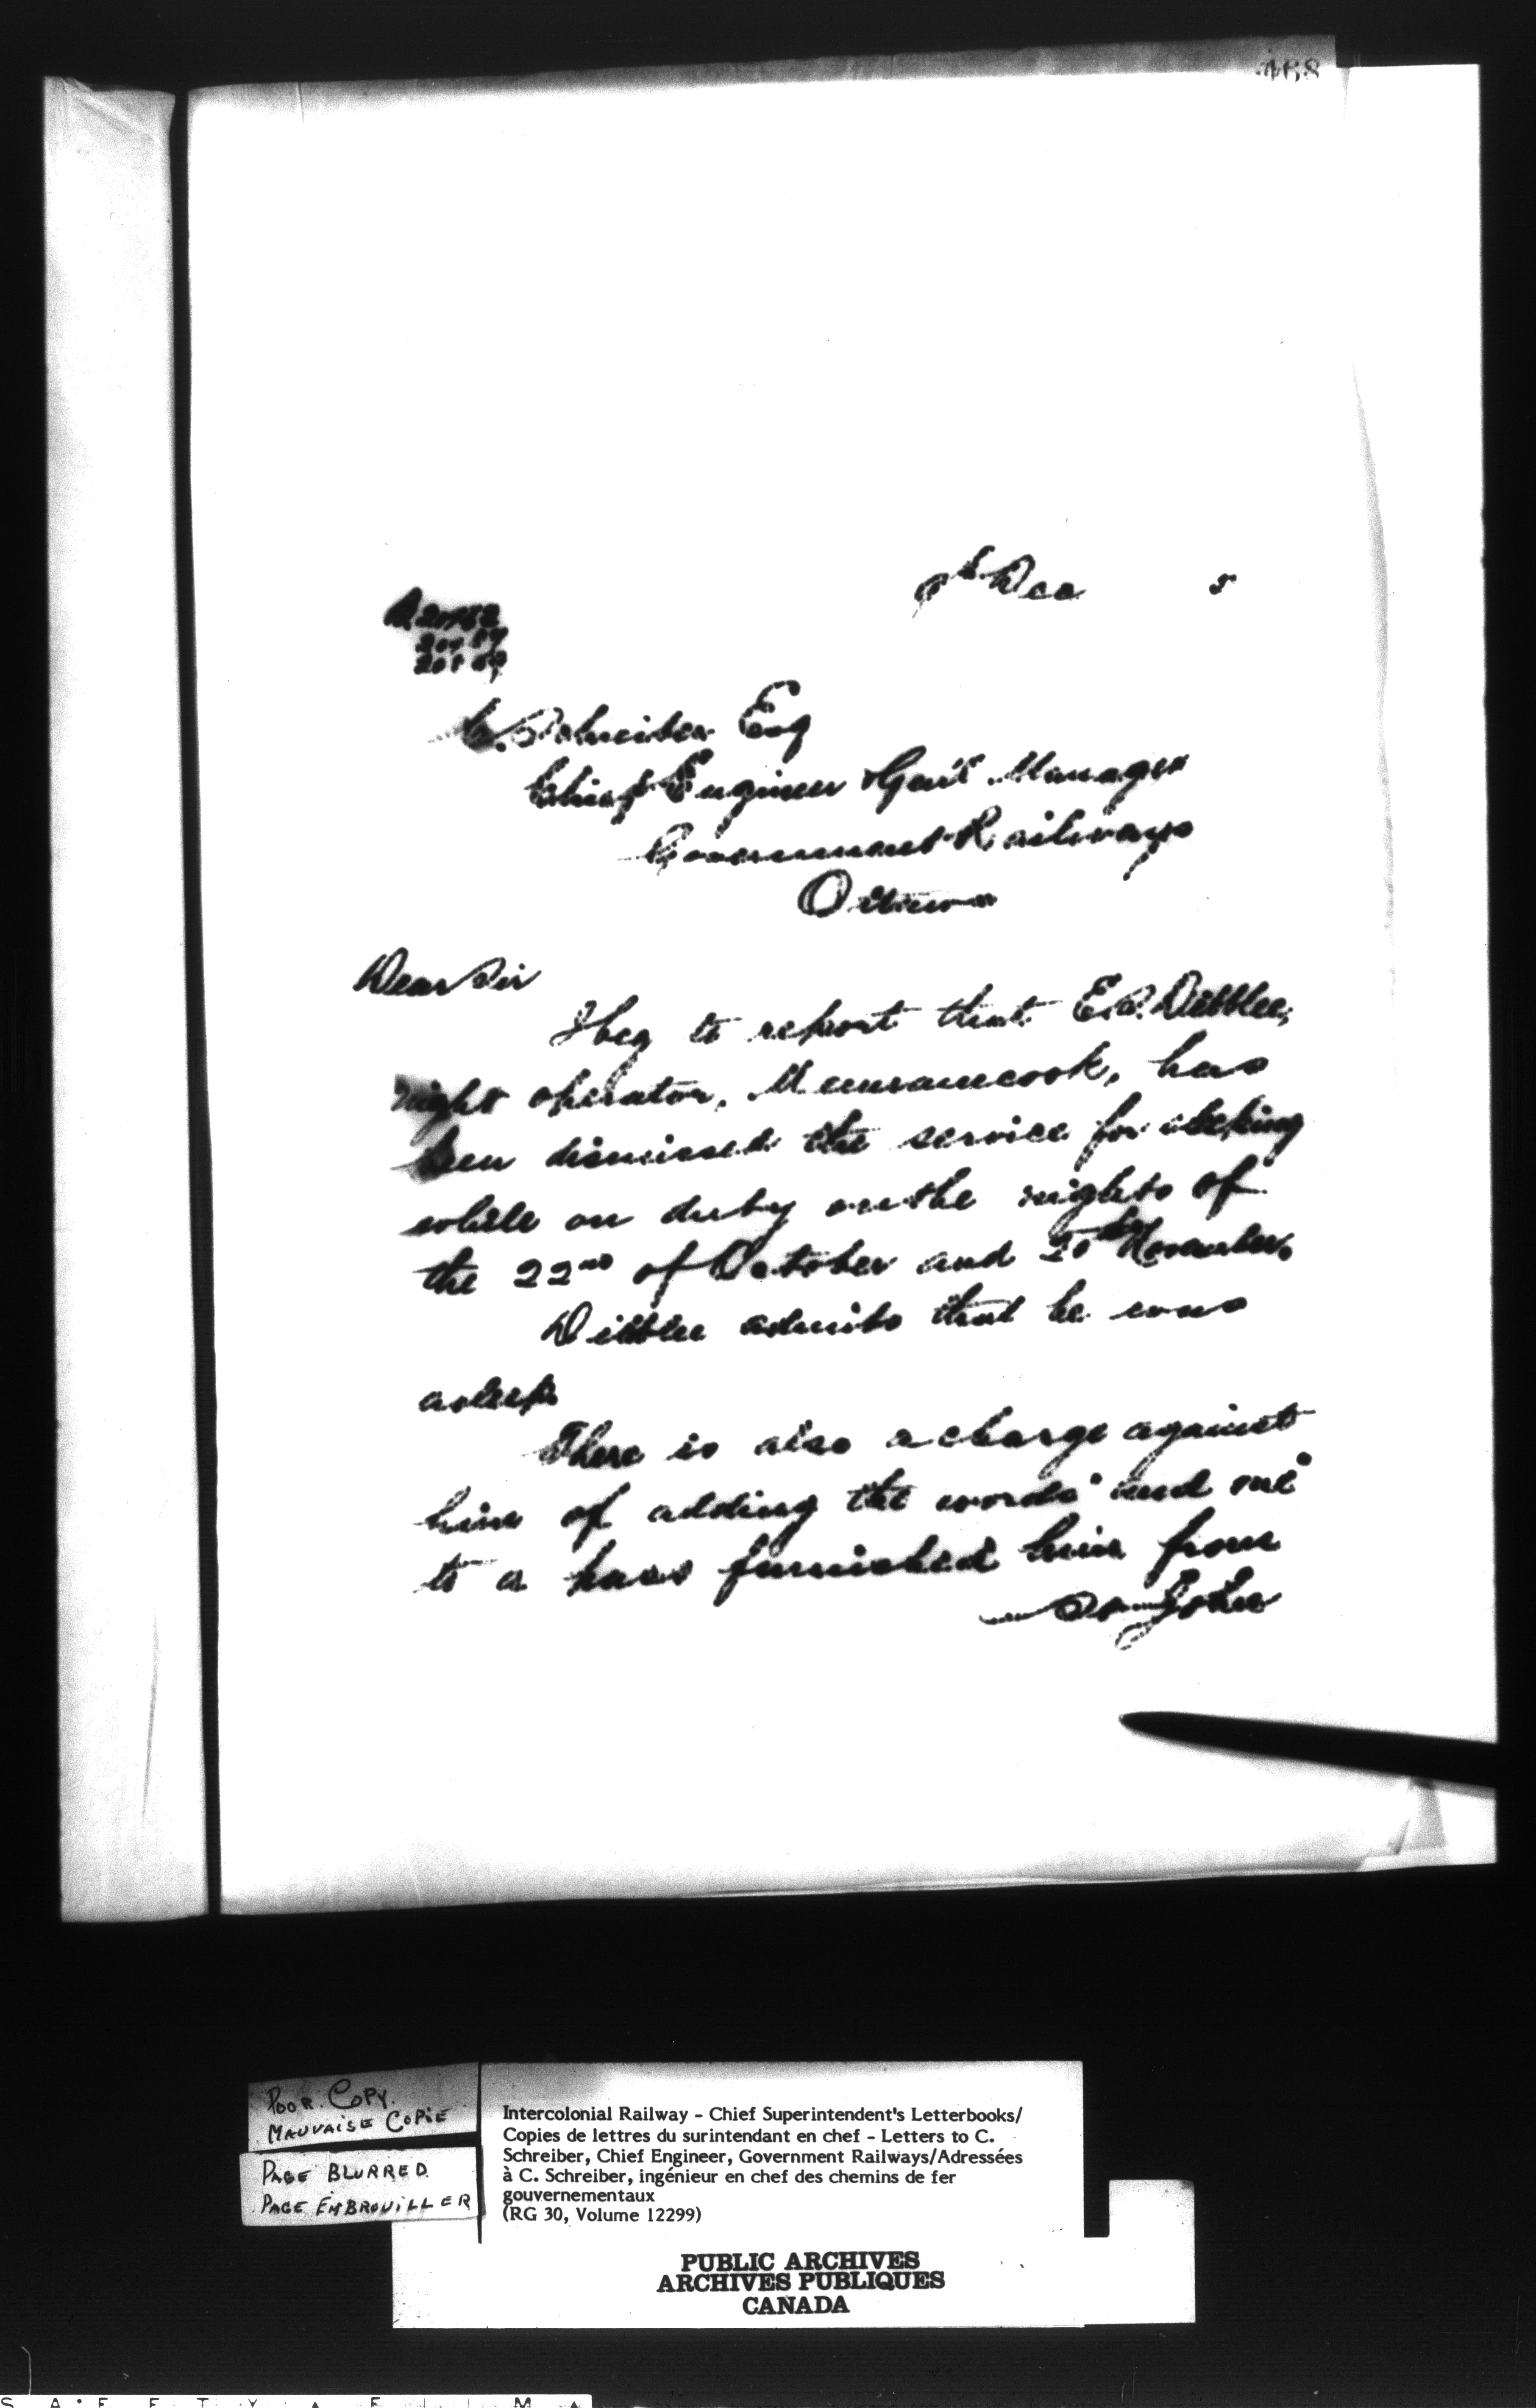 458
9th Dec 5
C. Schreiber Esq
Chief Engineer & Gen'l Manager
Government Railways
Ottawa
Dear Sir
I beg to report that E.A. Dibblee,
night operator, Memramcook, has
been dismissed the service for sleeping
while on duty on the nights of
the 22nd of October and 20th November.
Dibblee admits that he was
asleep.
There is also a charge against
him of adding the words "and one"
to a pass furnished him from
St John
POOR COPY.
MAUVAISE COPIE
PAGE BLURRED
PAGE EMBROUILLER
Intercolonial Railway - Chief Superintendent's Letterbooks/
Copies de lettres du surintendant en chef - Letters to C.
Schreiber, Chief Engineer, Government Railways/Adressées
à C. Schreiber, ingénieur en chef des chemins de fer
gouvernementaux
(RG 30, Volume 12299)
PUBLIC ARCHIVES
ARCHIVES PUBLIQUES
CANADA